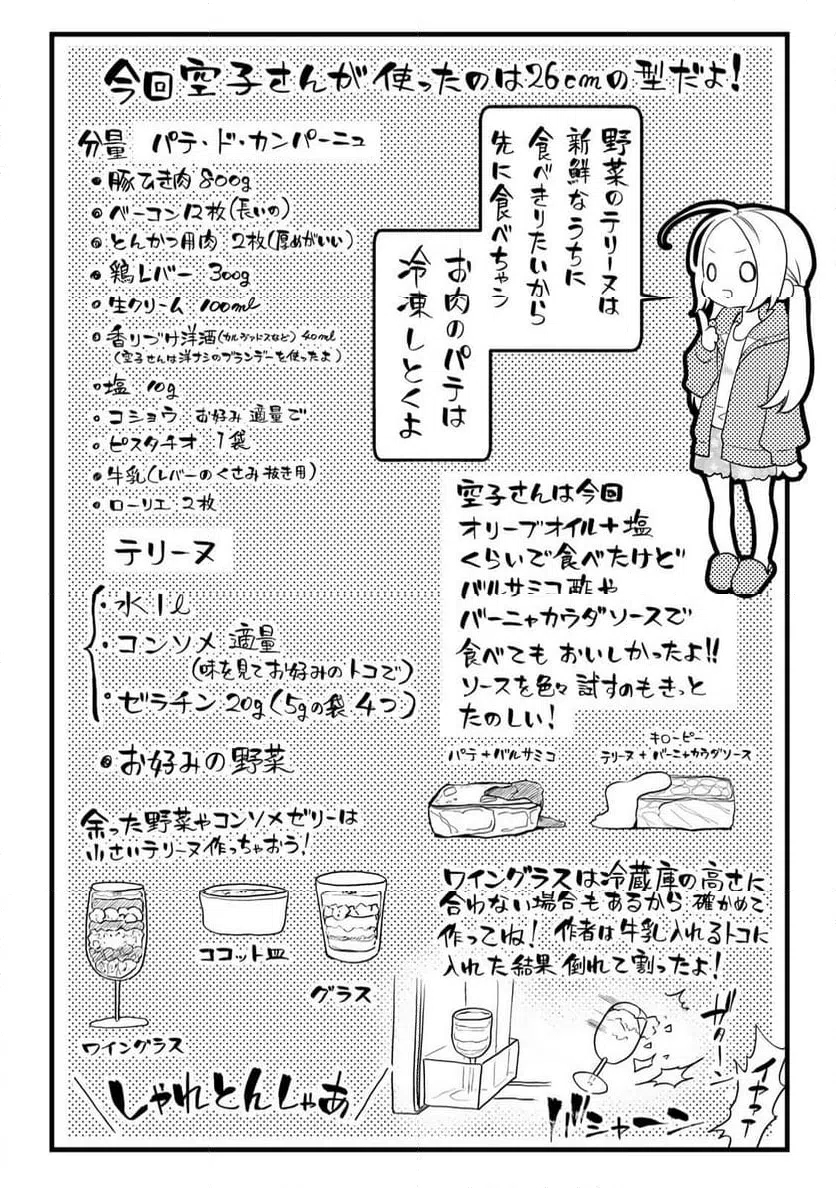 今回空子さんが使ったのは26cmの型だよ!
野菜のテリーヌは
新鮮なうちに
食べきりたいから
先に食べちゃう
お肉のパテは
冷凍しとくよ
分量 パテ・ド・カンパーニュ
豚ひき肉 800g
ベーコン12枚(長いの)
とんかつ用肉 2枚(厚めがいい)
鶏レバー 300g
生クリーム 100ml
香りづけ洋酒(カルヴァドスなど) 40ml
(空子さんは洋ナシのブランデーを使ったよ)
塩 10g
コショウ お好み適量で
ピスタチオ 1袋
牛乳(レバーのくさみ抜き用)
ローリエ 2枚
テリーヌ
・水1l
・コンソメ 適量
(味を見てお好みのトコで)
ゼラチン 20g(5gの袋4つ)
お好みの野菜
空子さんは今回
オリーブオイル+塩
くらいで食べたけど
バルサミコ酢や
バーニャカウダソースで
食べても おいしかったよ!!
ソースを色々試すのもきっと
たのしい!
パテ+バルサミコ
キューピー
テリーヌ+バーニャカウダソース
余った野菜やコンソメゼリーは
小さいテリーヌ作っちゃおう!
ワイングラス
ココット皿
グラス
しゃれとんしゃあ
ワイングラスは冷蔵庫の高さに
合わない場合もあるから 確かめて
作ってね! 作者は牛乳入れるトコに
入れた結果 倒れて割ったよ!
ガターン
バシャーン
イヤァー